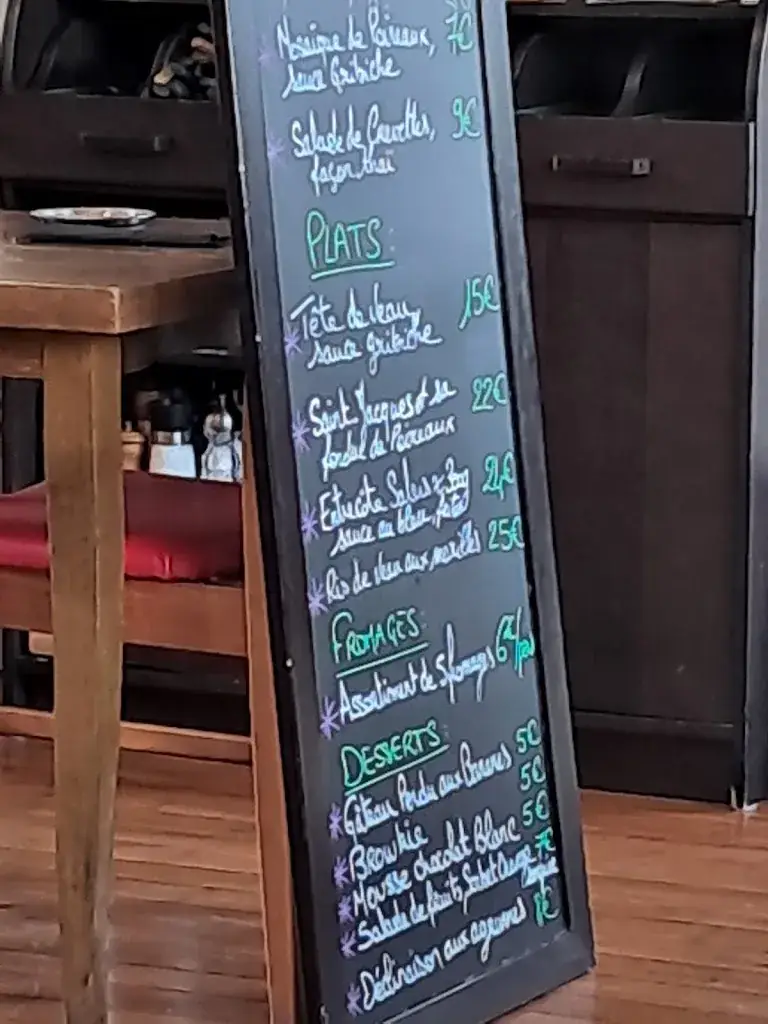 Mosaique de Poireaux, 7€
sauce Gribiche
Salade de Crevettes, 9€
façon thaï
PLATS :
Tête de veau, 15€
sauce gribiche
Saint Jacques et sa 22€
fondue de Poireaux
Entrecôte 24€
sauce au bleu, frites
Ris de veau aux morilles 25€
FROMAGES :
Assortiment de 5 fromages 6€/
DESSERTS :
Gâteau Perdu aux Bananes 5€
Brownie 5€
Mousse chocolat Blanc 5€
Salade de fruits, Sorbet 7€
Déclinaison aux agrumes 8€